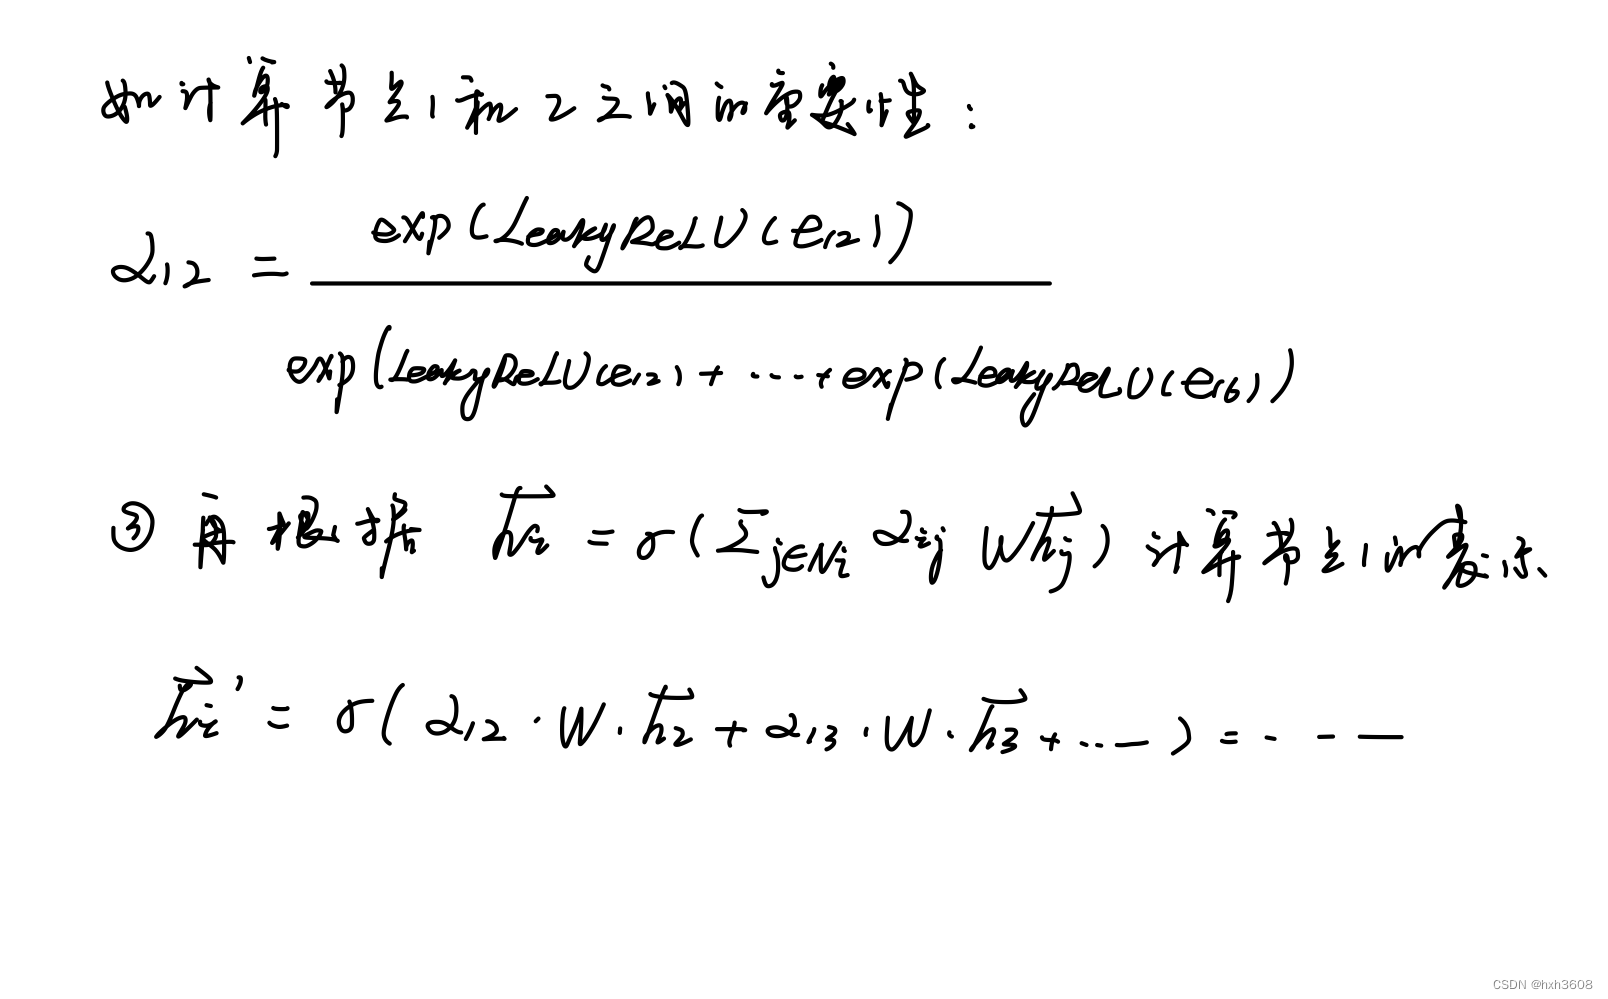 如计算节点1和2之间的重要性：
α₁₂ = exp(LeakyReLU(e₁₂))
exp(LeakyReLU(e₁₂) + ... + exp(LeakyReLU(e₁₆))
③ 再根据 h⃗ᵢ = σ(Σ_{j∈Nᵢ} αᵢⱼ Wh⃗ⱼ) 计算节点1的表示
h⃗ᵢ' = σ(α₁₂ · W · h⃗₂ + α₁₃ · W · h⃗₃ + ...—) = - - —
CSDN @hxh3608